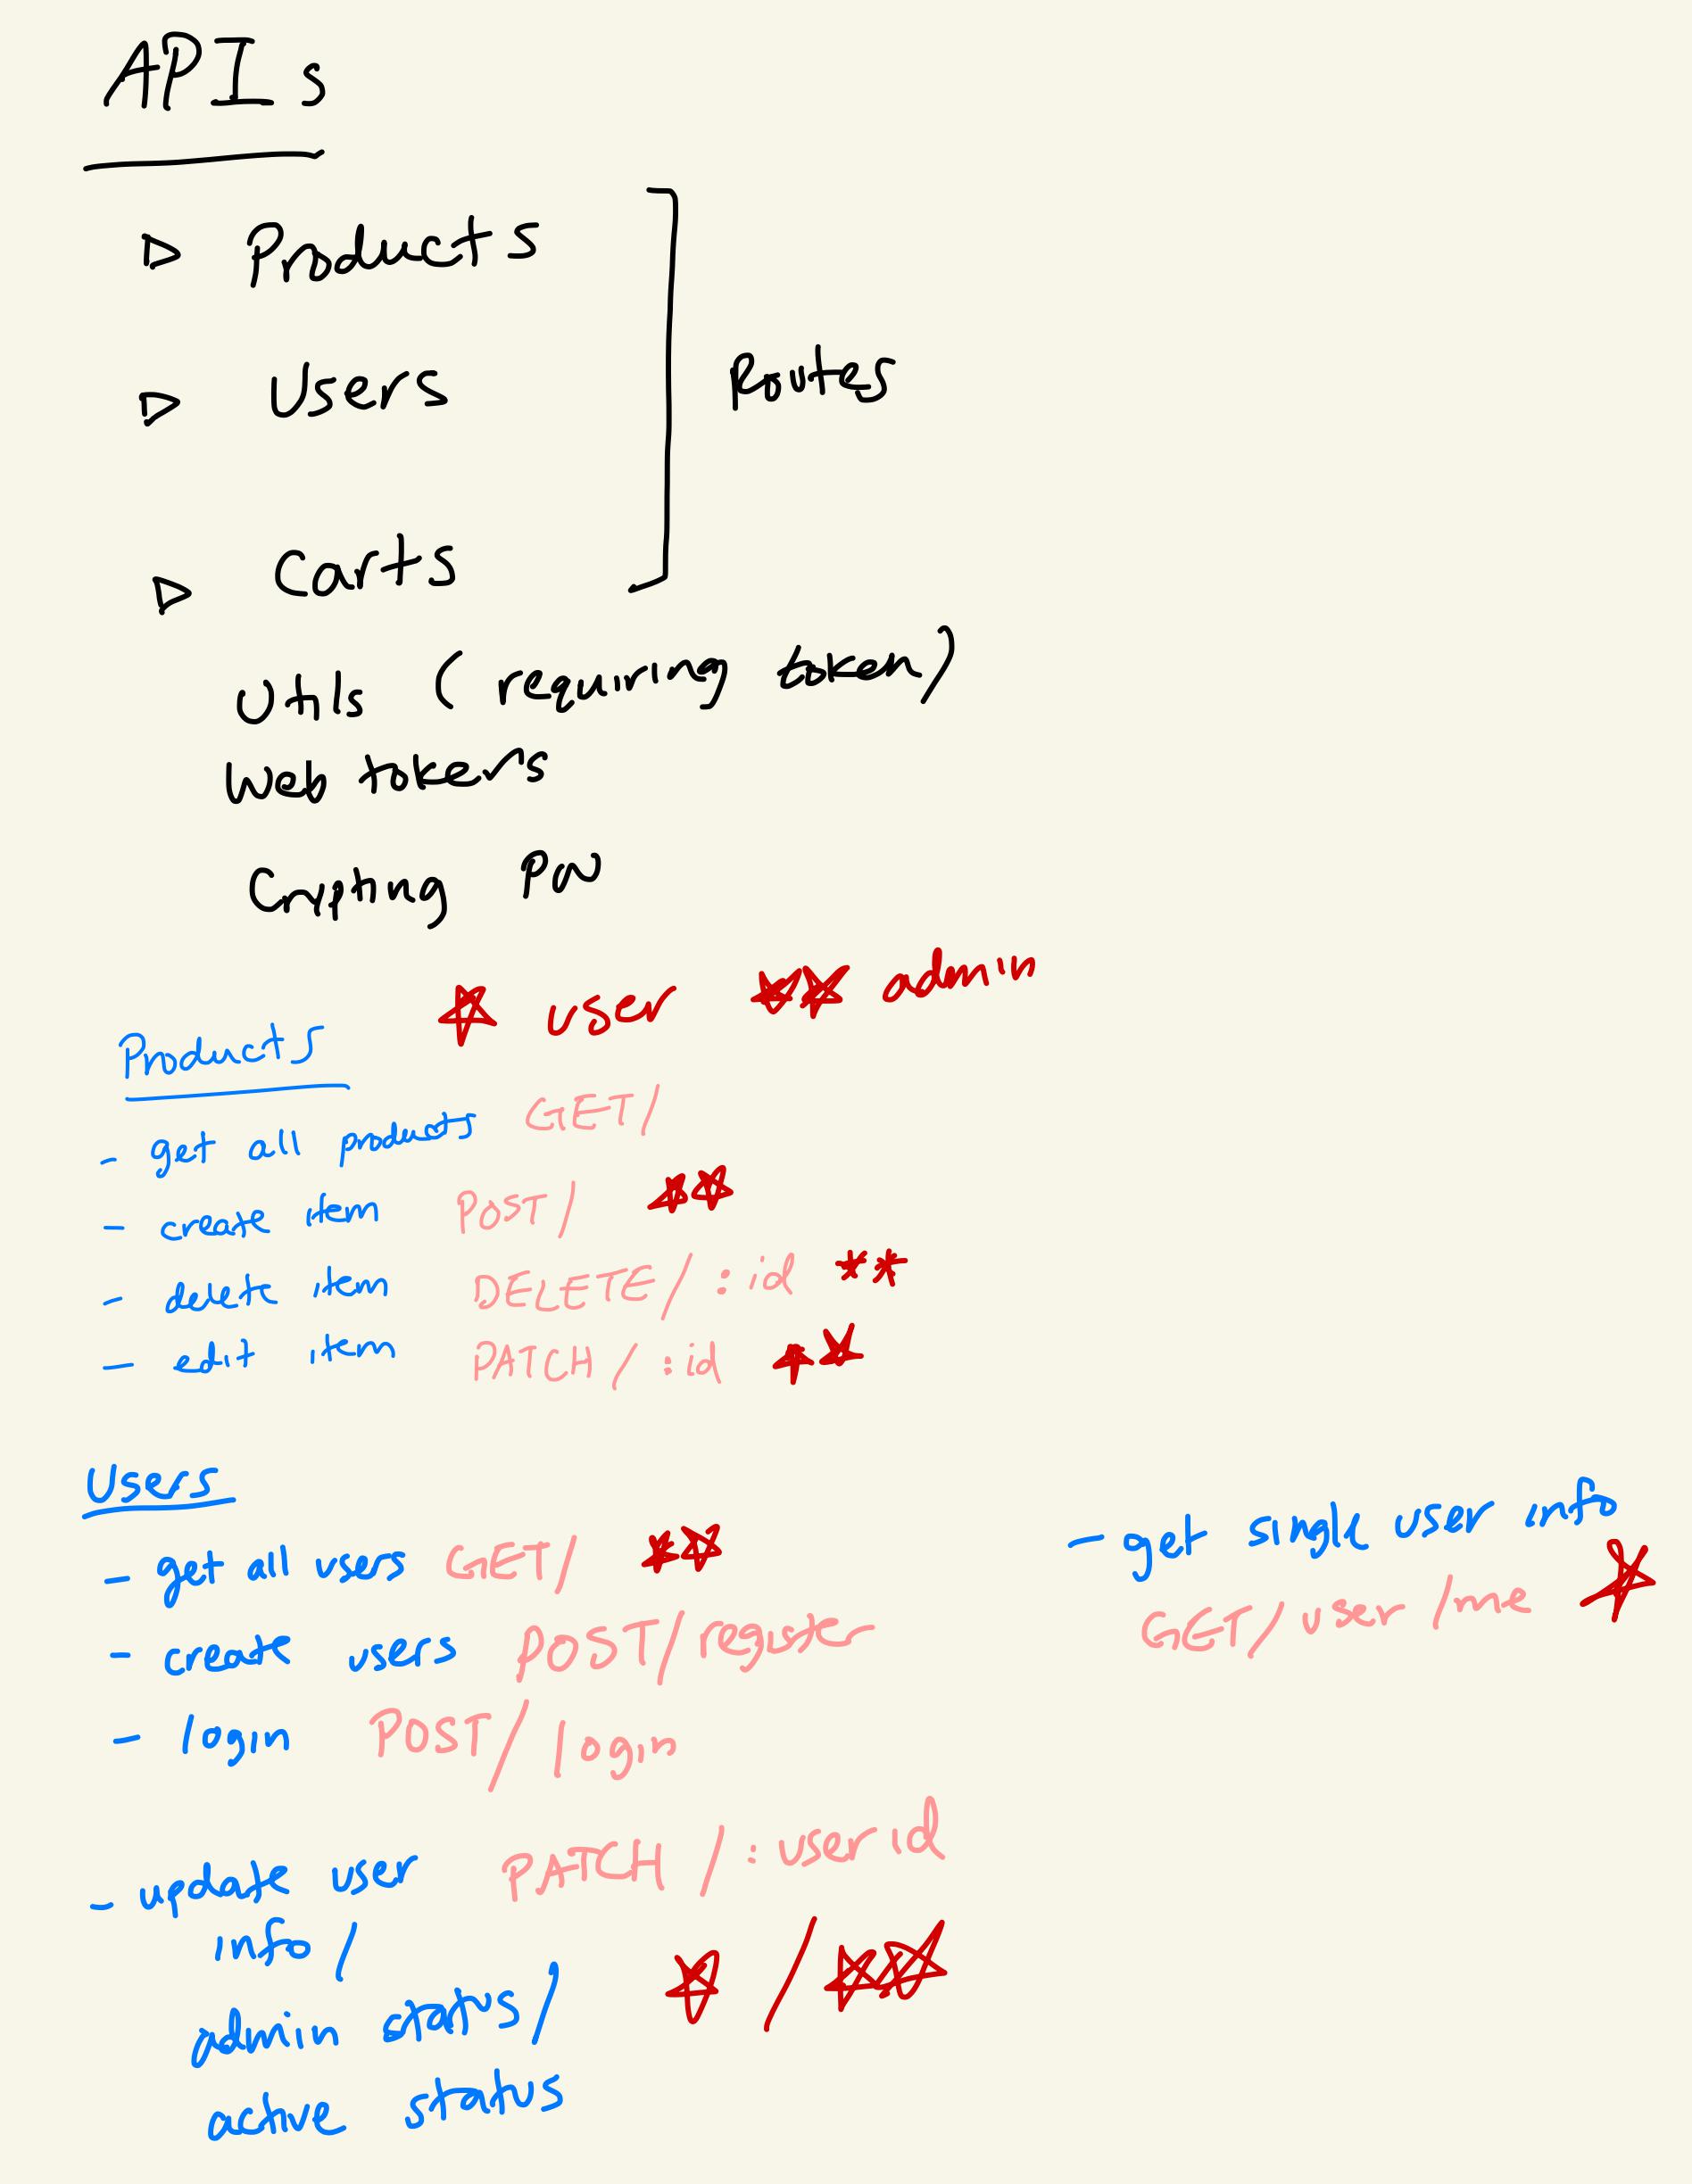 APIs
▷ Products
▷ Users
Routes
▷ Carts
Utils (requiring token)
Web tokens
Crypting PW
☆ user ☆☆ admin
Products
- get all products GET/
- create item POST/ ☆☆
- delete item DELETE/:id **
- edit item PATCH/:id ☆☆
Users
- get all users GET/ ☆☆
- create users POST/register
- login POST/login
- update user PATCH/:userid
info/
admin status/ ☆/☆☆
active status
- get single user info
GET/user/me ☆